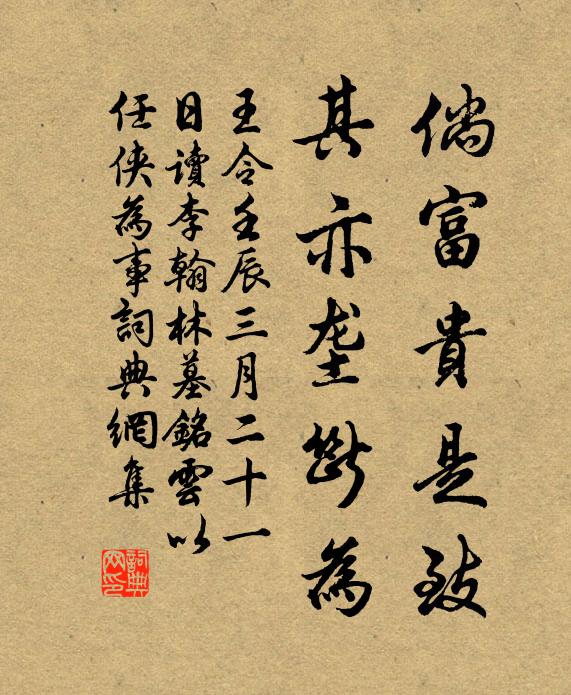 倘富貴是致
其亦垄斷為
王令壬辰三月二十一
日讀李翰林墓銘雲以
任俠為事詞典網集
詞典
网印